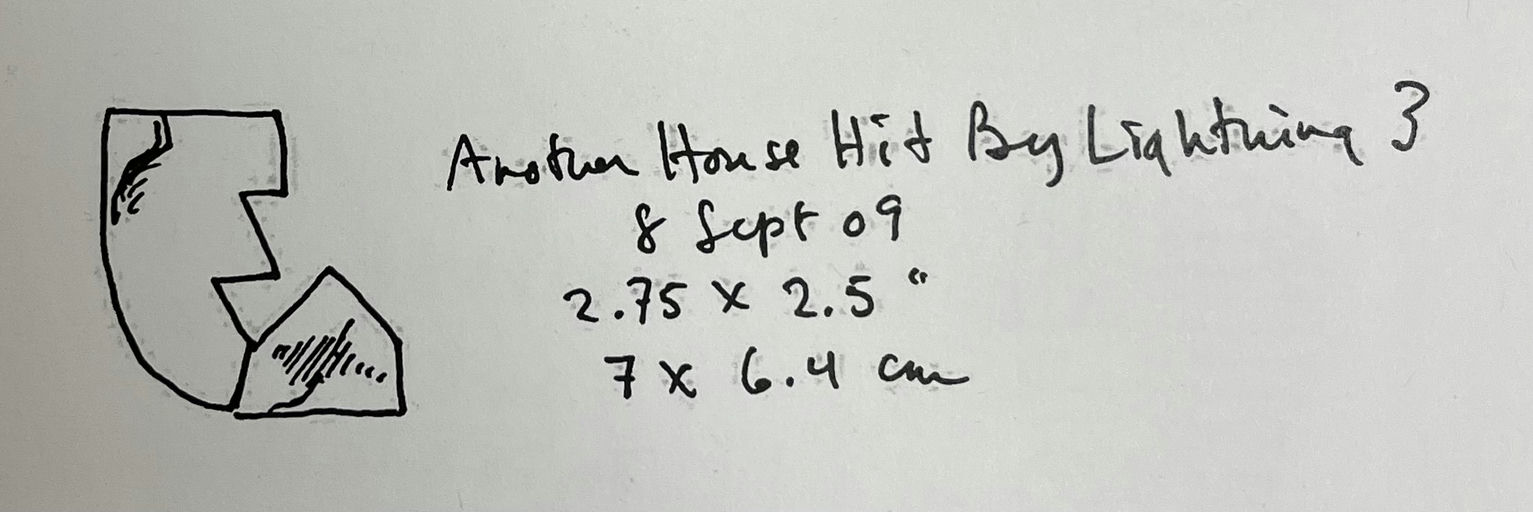 Another House Hit By Lightning 3
8 Sept 09
2.75 x 2.5 "
7 x 6.4 cm